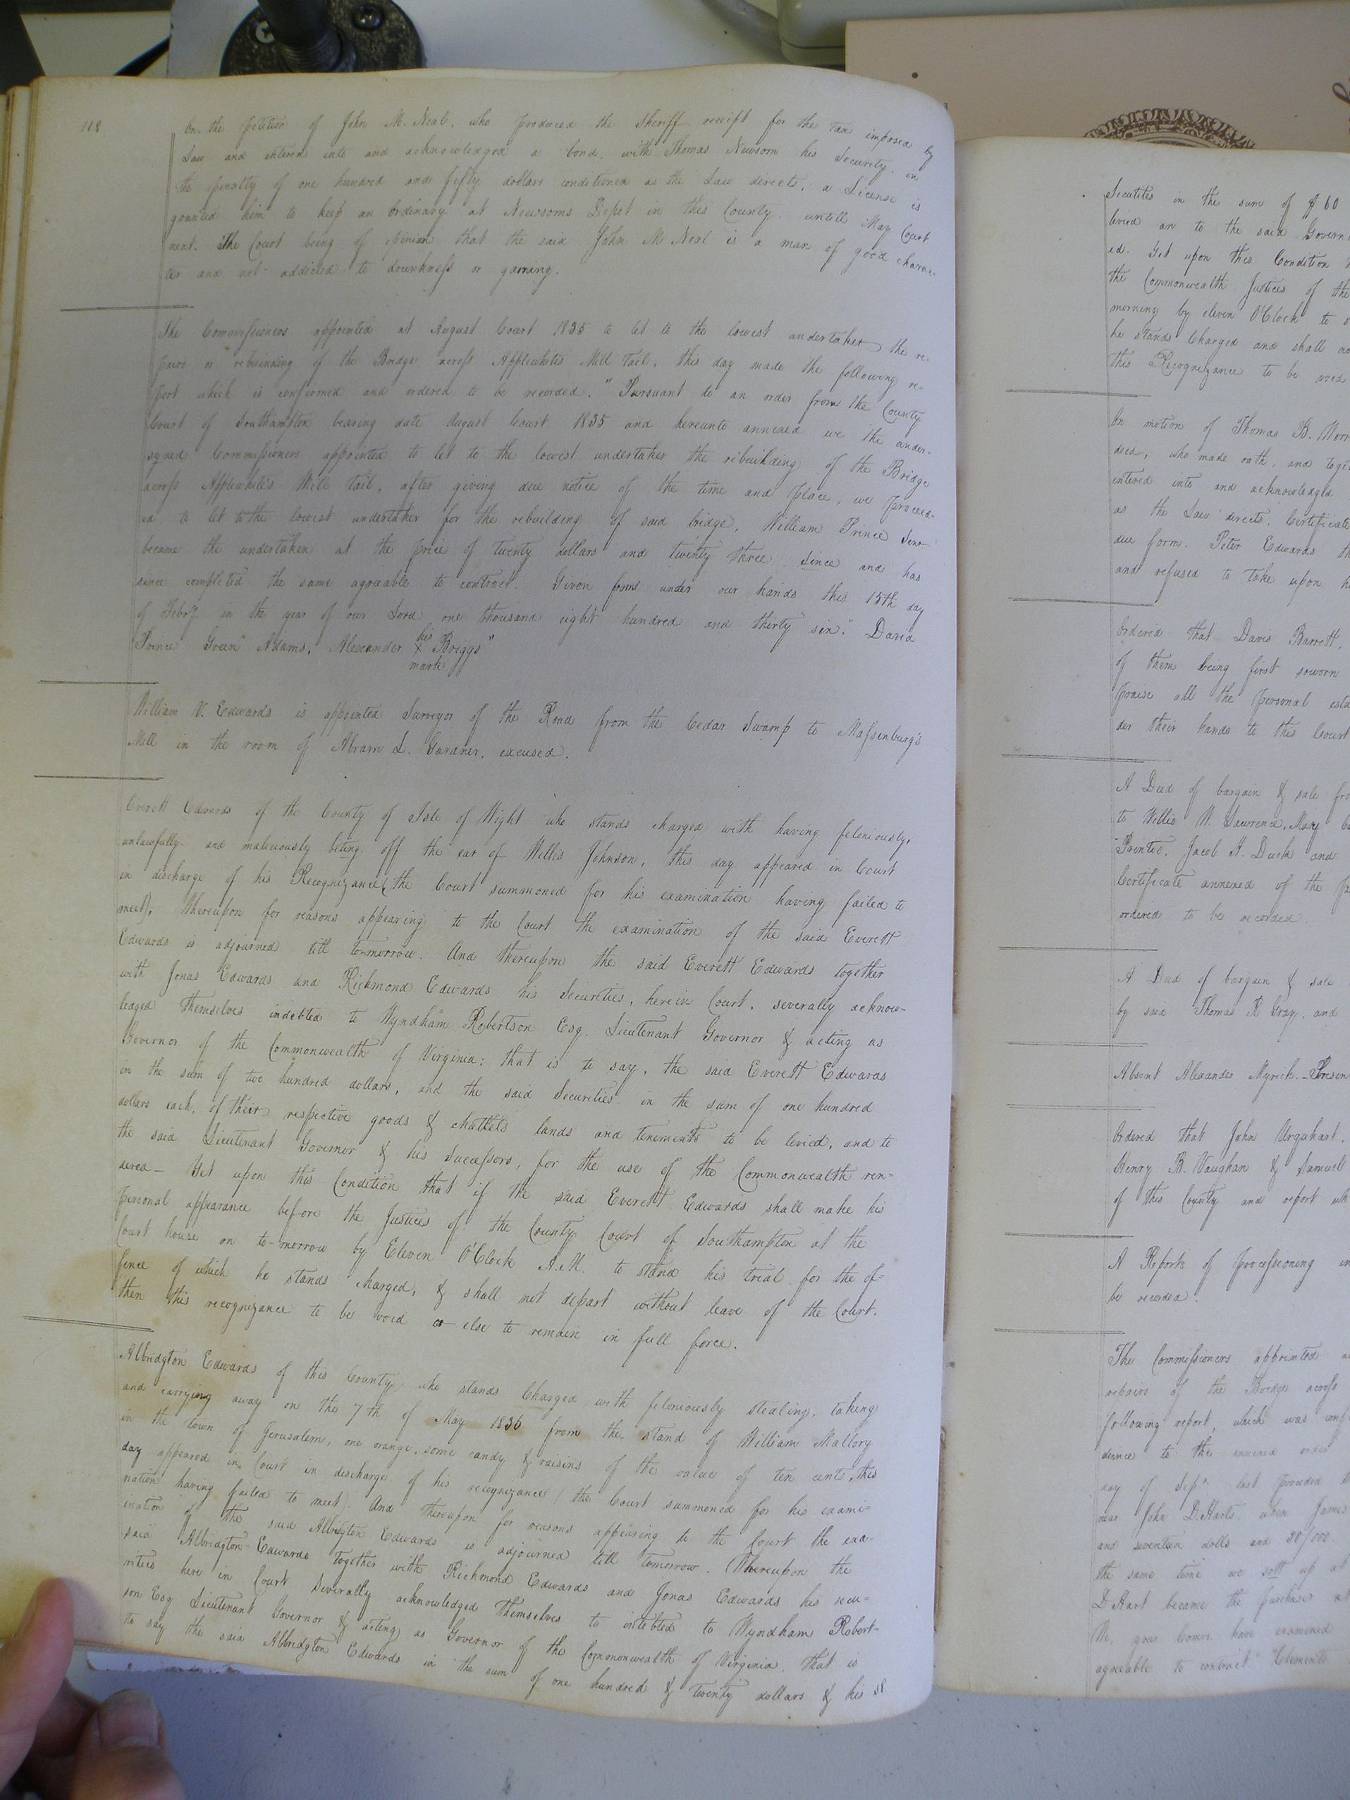 118
On the petition of John M. Neal, who produced the Sheriff receipt for the tax imposed by
Law and entered into and acknowledged a bond, with Thomas Newsom his Security in
the penalty of one hundred and fifty dollars conditioned as the Law directs, a License is
granted him to keep an Ordinary at Newsoms Depot in this County untill May Court
next. The Court being of opinion that the said John M. Neal is a man of good charac-
ter and not addicted to drunkness or gaming.
The Commissioners appointed at August Court 1835 to let to the lowest undertaker the re-
pairs or rebuilding of the Bridge across Applewhites Mill tail, this day made the following re-
port which is confirmed and ordered to be recorded. "Pursuant to an order from the County
Court of Southampton bearing date August Court 1835 and hereunto annexed we the under-
signed Commissioners appointed to let to the lowest undertaker the rebuilding of the Bridge
across Applewhite's Mill tail, after giving due notice of the time and place, we proceed-
ed to let to the lowest undertaker for the rebuilding of said bridge, William Prince Senr
became the undertaker at the price of twenty dollars and twenty three since and has
since completed the same agreeable to contract. Given from under our hands this 15th day
of Feby. in the year of our Lord one thousand eight hundred and thirty six." David
Prince Green Adams, Alexander his X mark Briggs"
William V. Edwards is appointed Surveyor of the Road from the Cedar Swamp to Massenburg's
Mill in the room of Abram L. Gardner, excused.
Everett Edwards of the County of Isle of Wight who stands charged with having feloniously,
unlawfully and maliciously biting off the ear of Willis Johnson, this day appeared in Court
in discharge of his Recognizance (the Court summoned for his examination having failed to
meet), Whereupon for reasons appearing to the Court the examination of the said Everett
Edwards is adjourned till tomorrow. And thereupon the said Everett Edwards together
with Jonas Edwards and Richmond Edwards his Securities, here in Court, severally acknow-
ledged themselves indebted to Wyndham Robertson Esq. Lieutenant Governor & acting as
Governor of the Commonwealth of Virginia; that is to say, the said Everett Edwards
in the sum of two hundred dollars, and the said Securities in the sum of one hundred
dollars each, of their respective goods & chattels lands and tenements to be levied, and to
the said Lieutenant Governor & his Successors, for the use of the Commonwealth ren-
dered— Yet upon this Condition that if the said Everett Edwards shall make his
personal appearance before the Justices of the County Court of Southampton at the
Court house on to-morrow by Eleven O'Clock A.M. to stand his trial for the of-
fence of which he stands charged, & shall not depart without leave of the Court,
then this recognizance to be void or else to remain in full force.
Albridgton Edwards of this County who stands Charged with feloniously stealing, taking
and carrying away on the 7th of May 1836 from the stand of William Mallory
in the town of Jerusalem, one orange, some candy & raisins of the value of ten cents, this
day appeared in Court in discharge of his recognizance (the Court summoned for his exami-
nation having failed to meet). And thereupon for reasons appearing to the Court the exa-
mination of the said Albridgton Edwards is adjourned till tomorrow. Whereupon the
said Albridgton Edwards together with Richmond Edwards and Jonas Edwards his secu-
rities here in Court severally acknowledged themselves to indebted to Wyndham Robert-
son Esq Lieutenant Governor & acting as Governor of the Commonwealth of Virginia, that is
to say the said Albridgton Edwards in the sum of one hundred & twenty dollars & his sd
Secutites in the sum of $60
levied an to the said Govern
ed. Yet upon this Condition
the Commonwealth Justices of the
morning by eleven O'Clock to
he stands Charged and shall no
this Recognizance to be void
On motion of Thomas B.
decd, who made oath, and toge
entered into and acknowledged
as the Law directs, Certificate
due form. Peter Edwards th
and refused to take upon h
Ordered that Davis Barrett,
of them being first sworn
praise all the personal esta
der their hands to this Court
A Deed of bargain & sale fro
to Willis W. Lawrence, Mary
Prentis, Jacob H. Duck and
Certificate annexed of the
ordered to be recorded.
A Deed of bargain & sale
by said Thomas R Gray, and
Absent Alexander Myrick.—Presen
Ordered that John Urquhart,
Henry B. Vaughan & Samuel
of this County and report wh
A Report of processioning
be recorded.
The Commissioners appointed
repairs of the Bridge across
following report, which was conf
dience to the annexed order
day of Sepr. last proceeded
near John D. Harts, when James
and seventeen dolls and 30/100
the same time we sett up at
D. Hart became the purchaser
We goes Comrs. have examined
agreeable to contract" Clements